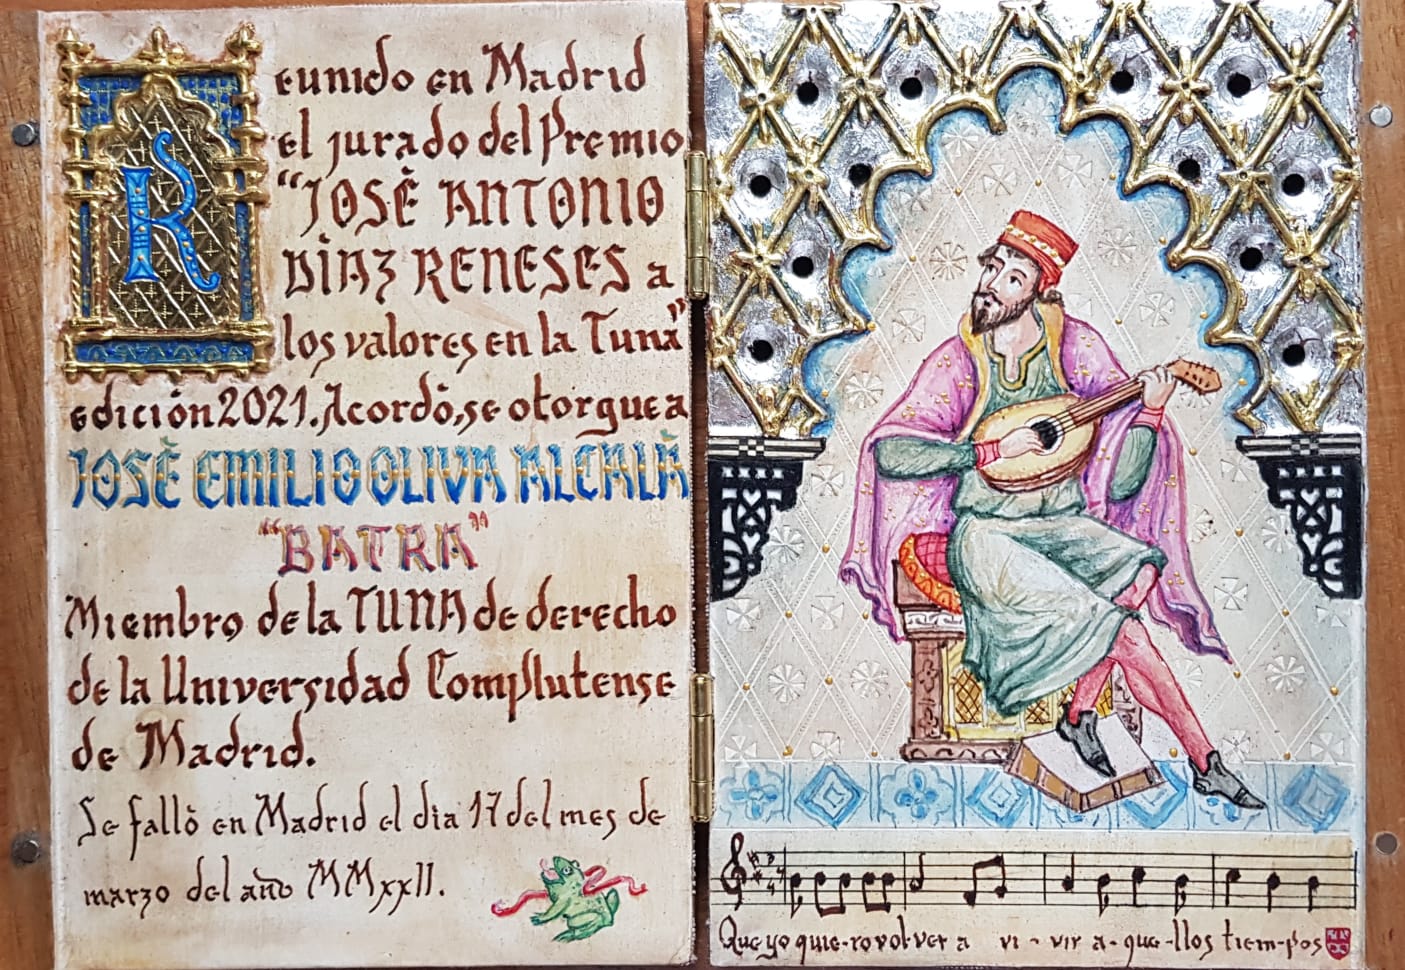 Reunido en Madrid
el jurado del Premio
“JOSÈ ANTONIO
DÌAZ RENESES a
los valores en la Tuna”
edición 2021. Acordò, se otorgue a
JOSÈ EMILIO OLIVA ALCALÀ
“BATRA”
Miembro de la TUNA de derecho
de la Universidad Complutense
de Madrid.
Se fallò en Madrid el dia 17 del mes de
marzo del año MMXXII.
Que yo quie-ro vol-ver a vi-vir a-que-llos tiem-pos